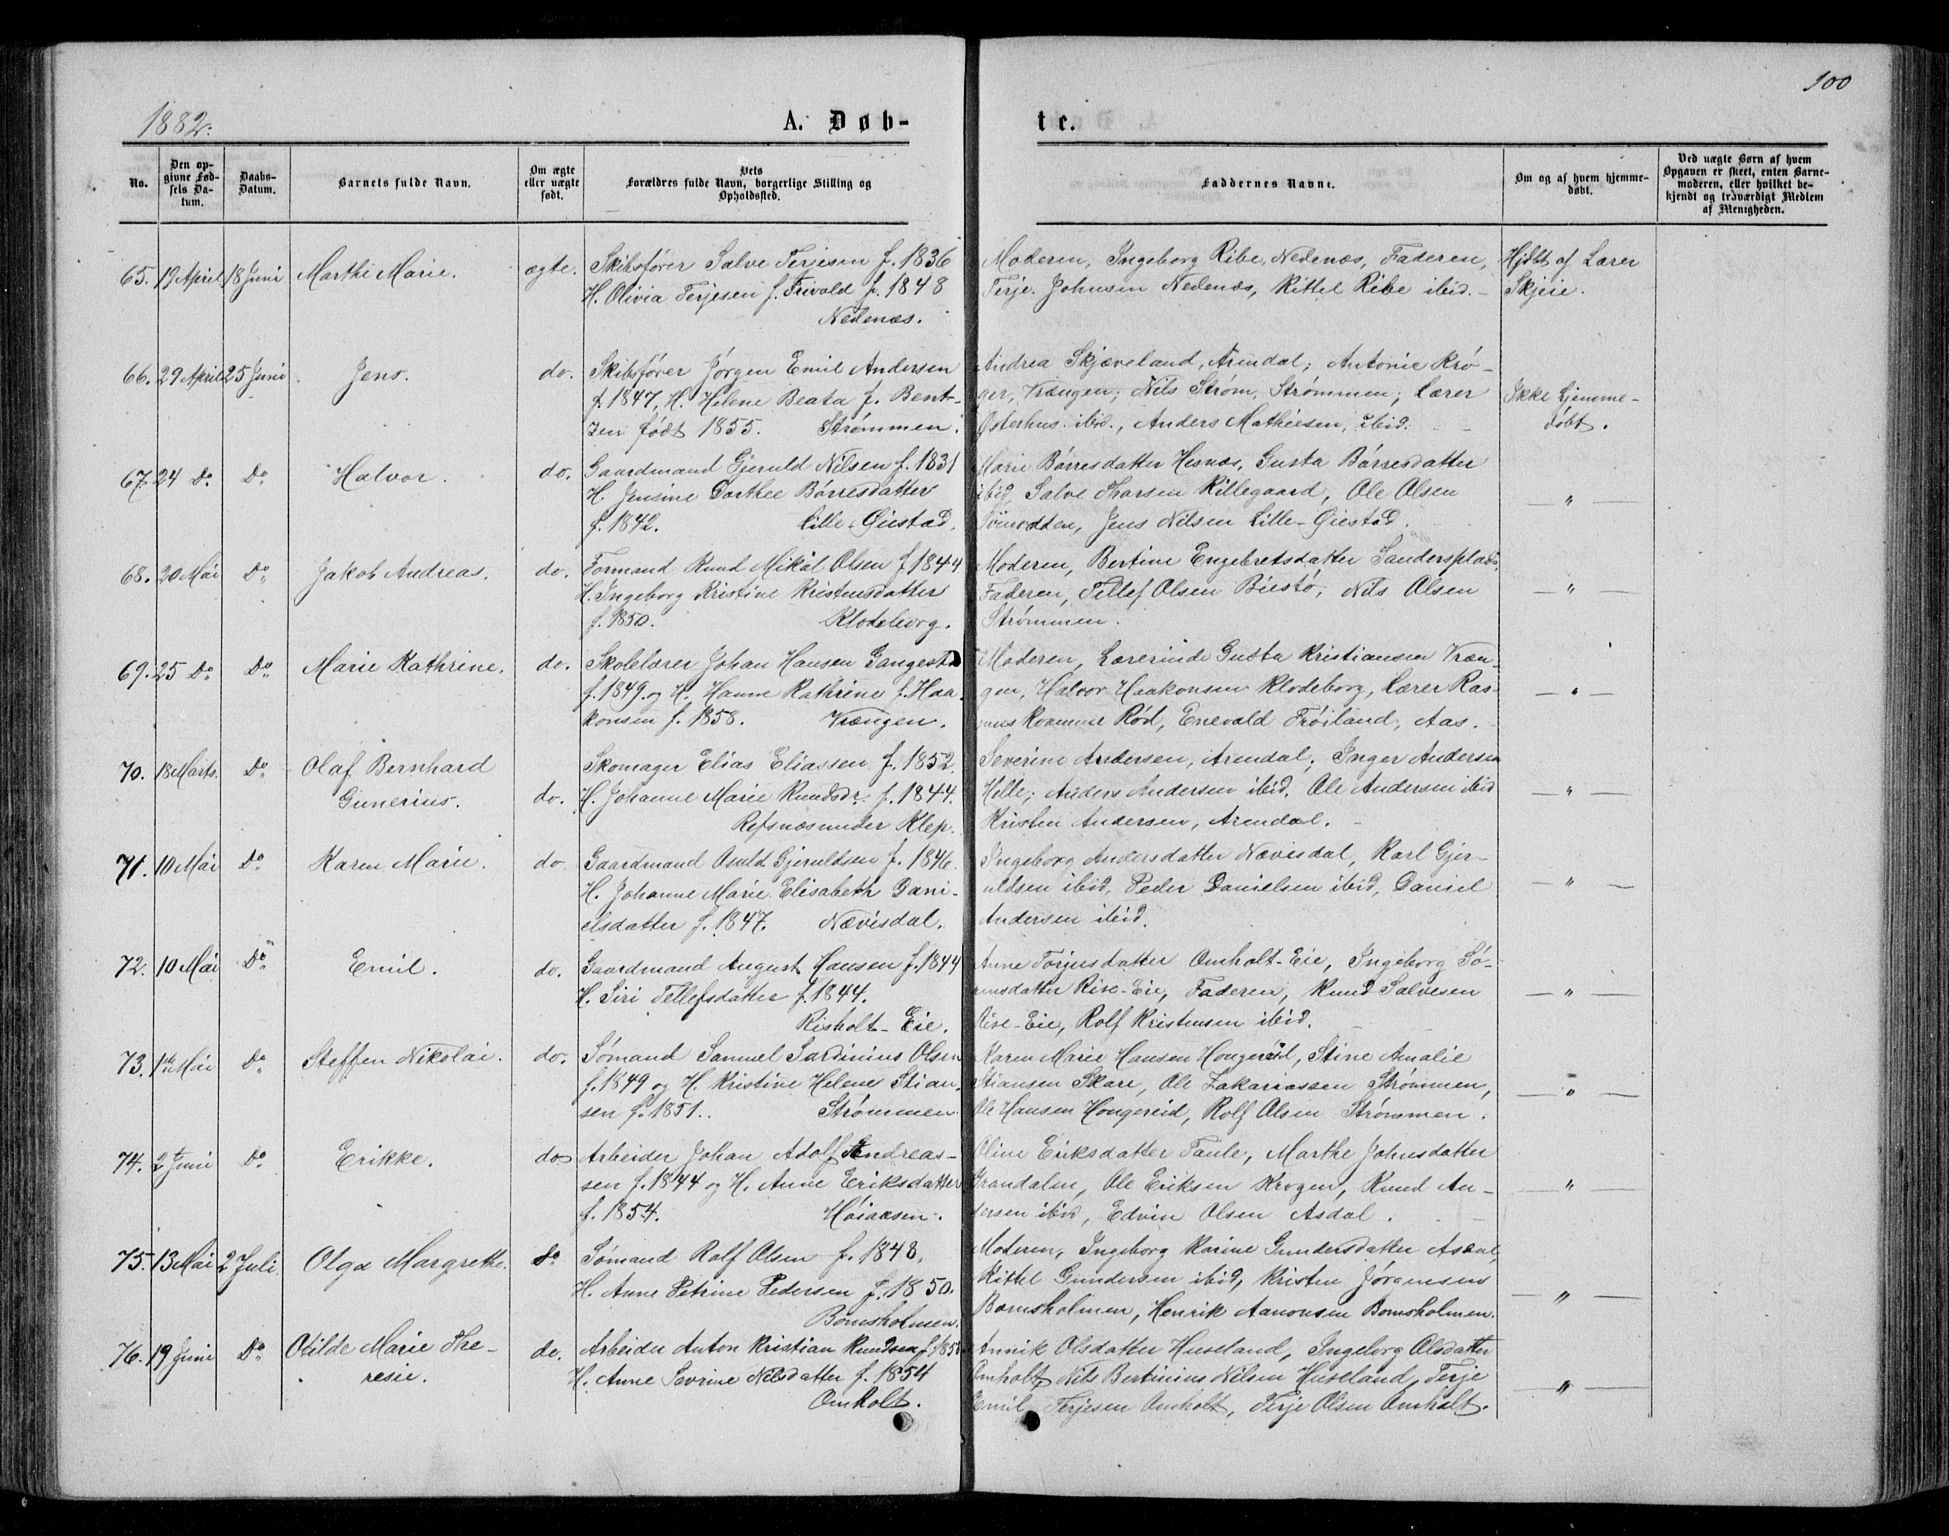 100
1882.
A. Døb-
te.
No.
Den op-
givne Fød-
sels Da-
tum.
Daabs-
Datum.
Barnets fulde Navn.
Om ægte
eller uægte
født.
Dets
Forældres fulde Navn, borgerlige Stilling og
Opholdssted.
Faddernes Navne.
Om og af hvem hjemme-
døbt.
Ved uægte Børn af hvem
Opgaven er skeet, enten Barne-
moderen, eller hvilket be-
kjendt og troværdigt Medlem
af Menigheden.
65. 19 April 18 Juni Marthe Marie. ægte. Skibsfører Salve Terjesen f. 1836
H. Olivia Terjesen f. Frivold f. 1848
Nedenæs.
Moderen, Ingeborg Ribe, Nedenæs, Faderen,
Terje Johnsen Nedenæs, Kittel Ribe ibid.
Hjdbt af Lærer
Skjeie.
66. 29 April 25 Juni Jens. do. Skibsfører Jørgen Emil Andersen
f. 1847, H. Helene Beata f. Bent-
zen født 1855. Strømmen.
Andrea Skjæveland, Arendal; Antonie Krø-
ger, Vrængen; Nils Strøm, Strømmen; Lærer
Østerhus ibid., Anders Mathiesen, ibid.
Ikke hjemme-
døbt.
67. 24 Do. Do Halvor. do. Gaardmand Gjeruld Nilsen f. 1831
H. Jensine Dorthee Børresdatter
f. 1842. Lille-Øiestad.
Marie Børresdatter Hesnæs, Gusta Børresdatter
ibid, Salve Thorsen Killegaard, Ole Olsen
Svinodden, Jens Nilsen Lille-Øiestad.
— " —
68. 20 Mai Do Jakob Andreas. do. Formand Knud Mikal Olsen f. 1844
H. Ingeborg Kristine Kristensdatter
f. 1850. Klodeborg.
Moderen, Bertine Engebretsdatter Sandersplads,
Faderen, Tellef Olsen Biestø, Nils Olsen
Strømmen.
— " —
69. 25 Do. Do Marie Kathrine. do. Skolelærer Johan Hansen Gangestø
f. 1849. og H. Hanne Kathrine f. Haa-
konsen f. 1858. Vrængen.
Moderen, Lærerinde Gusta Kristiansen Vræn-
gen, Halvor Haakonsen Klodeborg, Lærer Ras-
mus Kvamme Rød, Enevald Frøiland, Aas.
— " —
70. 18 Marts. Do Olaf Bernhard
Gunerius. do. Skomager Elias Eliassen f. 1852.
H. Johanne Marie Knudsdr. f. 1844.
Refsnæs under Klep.
Severine Andersen, Arendal; Inger Andersen
Helle; Anders Andersen ibid. Ole Andersen ibid
Kristen Andersen, Arendal.
— " —
71. 10 Mai Do Karen Marie. do Gaardmand Osuld Gjeruldsen f. 1846.
H. Johanne Marie Elisabeth Dani-
elsdatter f. 1847. Nævisdal.
Ingeborg Andersdatter Nævisdal, Karl Gjer-
uldsen ibid, Peder Danielsen ibid, Daniel
Andersen ibid.
— " —
72. 10 Mai Do Emil. do. Gaardmand August Hansen f. 1844
H. Siri Tellefsdatter f. 1844.
Risholt-Eie.
Anne Torjusdatter Omholt-Eie, Ingeborg Sø-
rensdatter Rise-Eie, Faderen, Knud Salvesen
Rise-Eie, Rolf Kristensen ibid.
— " —
73. 1ste Mai Do Steffen Nikolai. do. Sømand Samuel Sardinius Olsen
f. 1849 og H. Kristine Helene Stian-
sen f. 1851. Strømmen.
Karen Marie Hansen Hongereid, Stine Amalie
Stiansen Skare, Ole Zakariassen Strømmen,
Ole Hansen Hongereid, Rolf Olsen Strømmen.
— " —
74. 2 Juni Do Erikke. do Arbeider Johan Adolf Andreas-
sen f. 1844 og H. Anne Eriksdatter
f. 1854. Høiaasen.
Oline Eriksdatter Faule, Marthe Johnsdatter
Grandalen, Ole Eriksen Krogen, Knud An-
dersen ibid, Edvin Olsen Asdal.
— " —
75. 13 Mai 2 Juli. Olga Margrethe. do Sømand Rolf Olsen f. 1848.
H. Anne Petrine Pedersen f. 1850.
Bomsholmen.
Moderen, Ingeborg Karine Gundersdatter Asdal,
Kittel Gundersen ibid, Kristen Jørgensen
Bomsholmen, Henrik Aanonsen Bomsholmen.
— " —
76. 19 Juni Do Otilde Marie The-
resie. do. Arbeider Anton Kristian Knudsen f. 185
H. Anne Sevrine Nilsdatter f. 1854
Omholt.
Annik Olsdatter Huseland, Ingeborg Olsdatter
Omholt, Nils Bertinius Nilsen Huseland, Terje
Emil Terjesen Omholt, Terje Olsen Omholt.
— " —